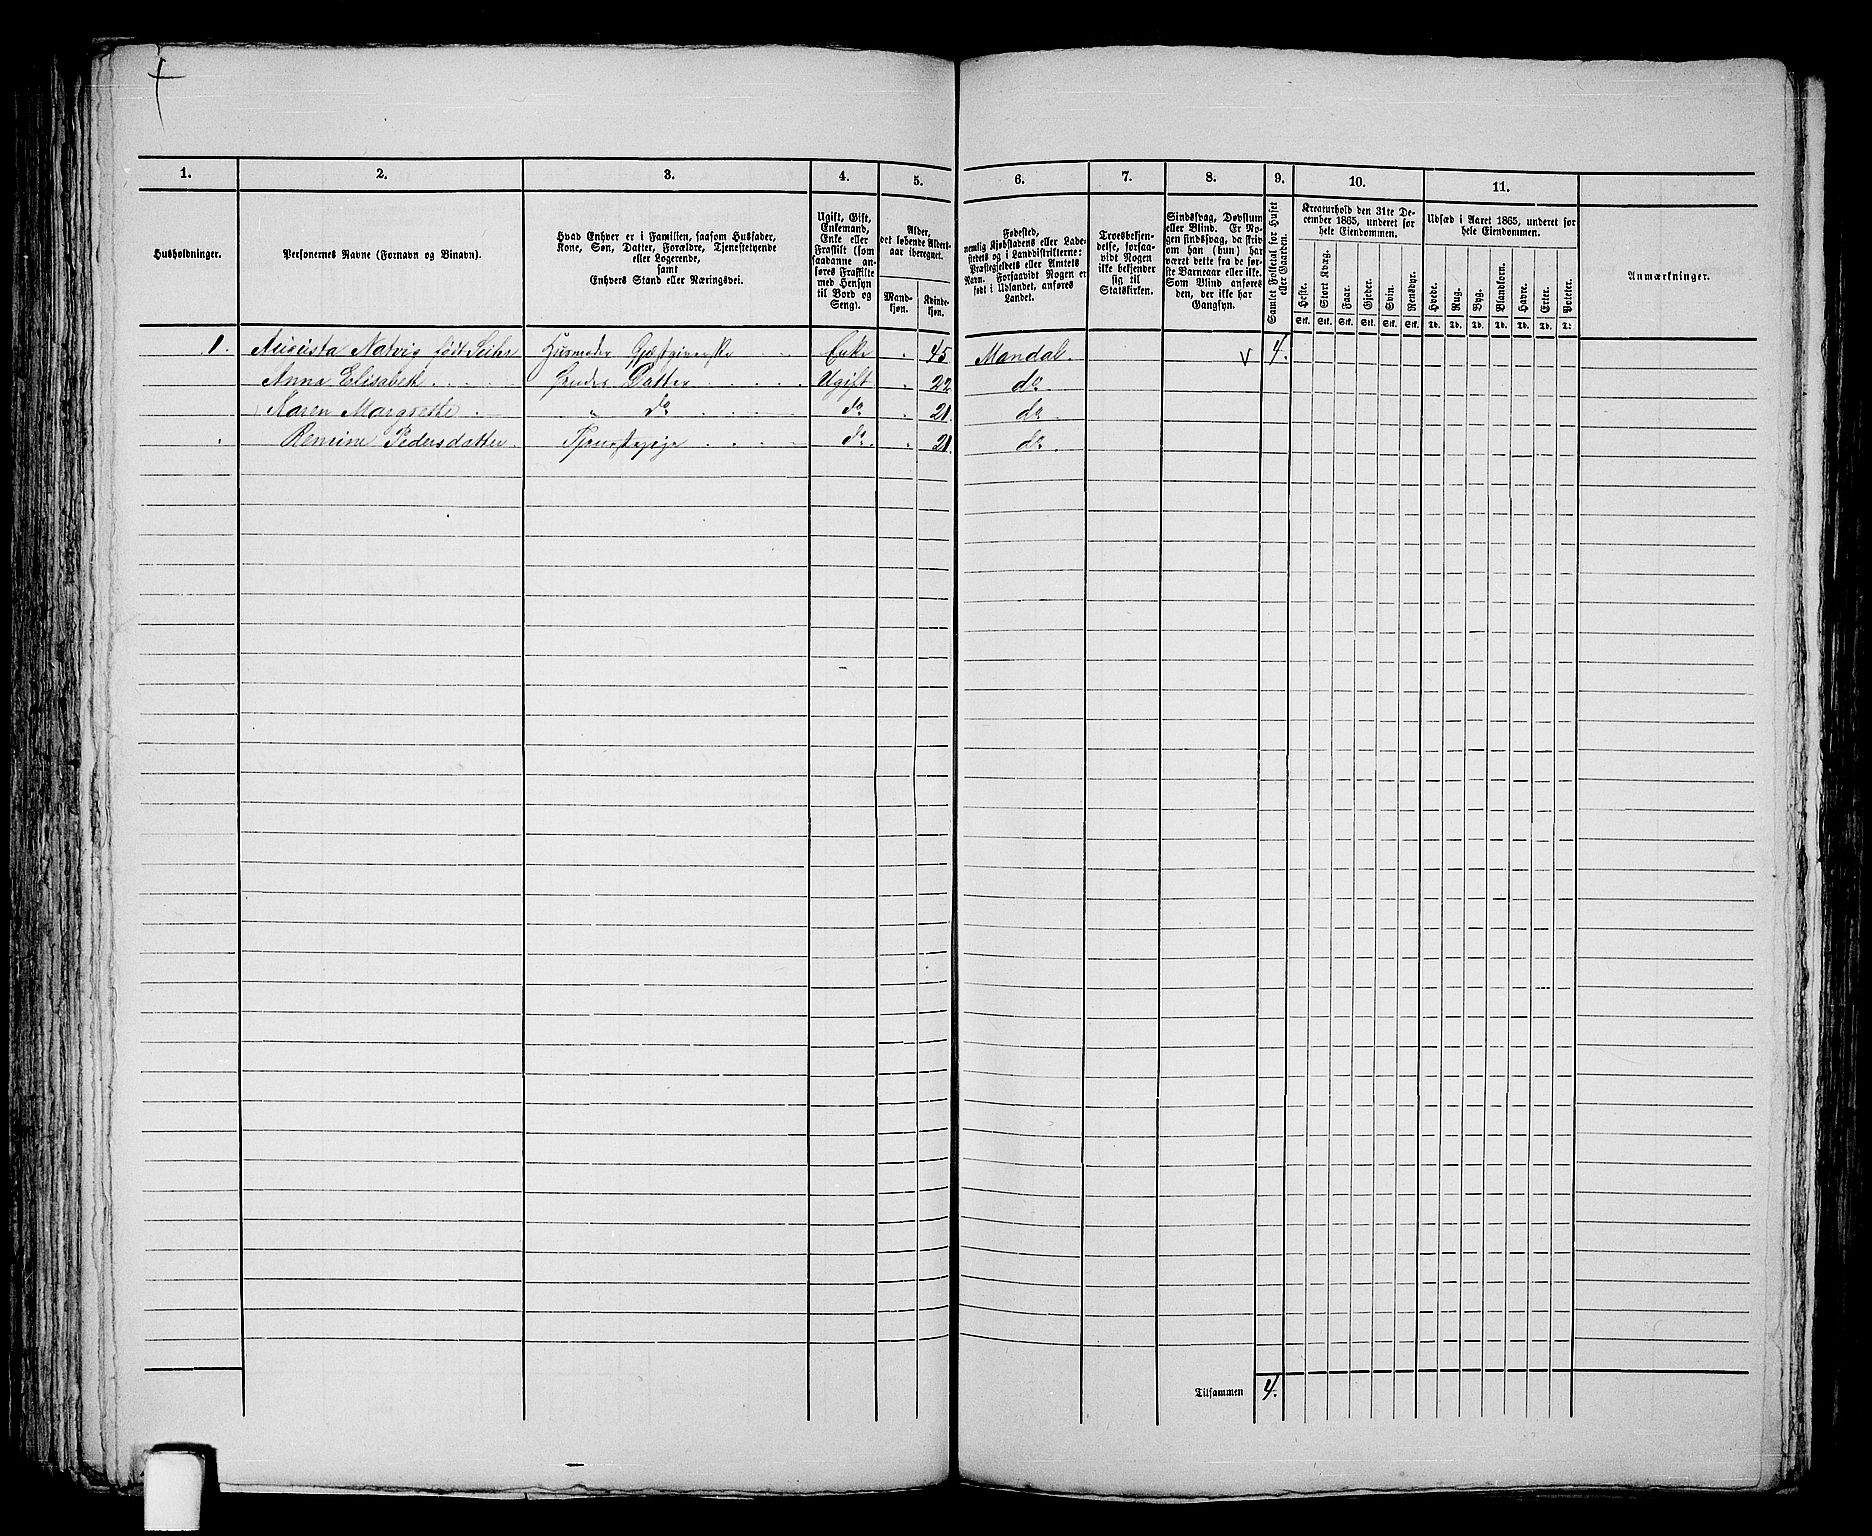 1. 2. 3. 4. 5. 6. 7. 8. 9. 10. 11.
Husholdninger.
Personernes Navne (Fornavn og Binavn).
Hvad Enhver er i Familien, saasom Husfader,
Kone, Søn, Datter, Forældre, Tjenestetyende
eller Logerende,
samt
Enhvers Stand eller Næringsvei.
Ugift, Gift,
Enkemand,
Enke eller
Fraskilt (som
saadanne an-
føres Fraskilte
med Hensyn
til Bord og
Seng).
Alder,
det løbende Alders-
aar iberegnet.
Mand-
kjøn.
Kvinde-
kjøn.
Fødested,
nemlig Kjøbstadens eller Lade-
stedets og i Landdistrikterne:
Præstegjeldets eller Amtets
Navn. Forsaavidt Nogen er
født i Udlandet, anføres
Landet.
Troesbekjen-
delse, forsaa-
vidt Nogen
ikke bekjender
sig til
Statskirken.
Sindssvag, Døvstum
eller Blind. Er No-
gen sindssvag, da skriv
om han (hun) har
været dette fra de før-
ste Barneaar eller ikke.
Som Blind anføres
den, der ikke har
Gangsyn.
Samlet Folketal for Huset
eller Gaarden.
Kreaturhold den 31te De-
cember 1865, underet for
hele Eiendommen.
Heste. Stort Kvæg. Faar. Gjeder. Svin. Rensdyr.
Stk. Stk. Stk. Stk. Stk. Stk.
Udsæd i Aaret 1865, underet for
hele Eiendommen.
Hvede. Rug. Byg. Blandkorn. Havre. Erter. Poteter.
Td. Td. Td. Td. Td. Td. Td.
Anmærkninger.
1. Augusta Natvig født Enke 45 Mandal. 4.
Anna Elisabeth Datter Ugift 22 do
Karen Margrethe " do do 21. do
Remine Pedersdatter Tjenestepige do 21. do
Tilsammen 4.